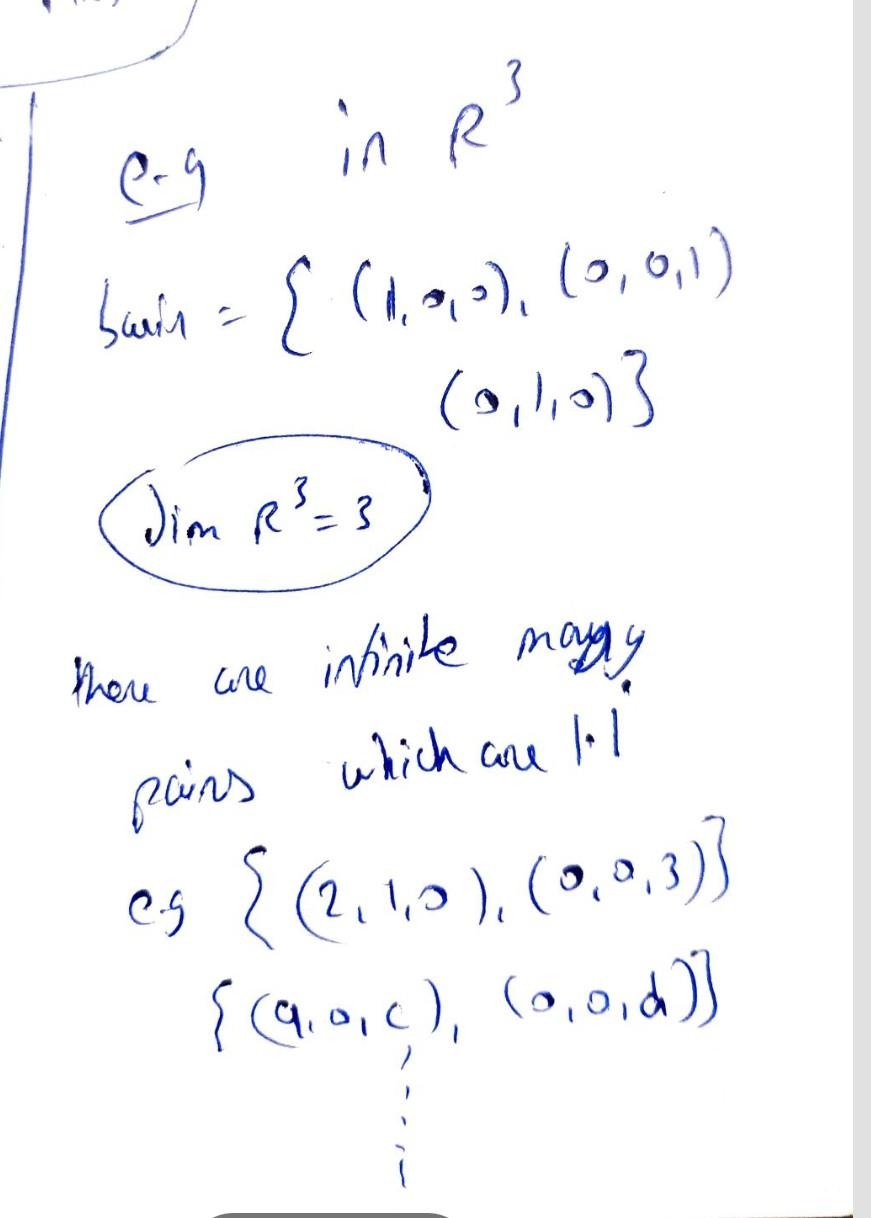 e.g in R³
basis = { (1,0,0), (0,0,1)
(0,1,0)}
Dim R³ = 3
there are infinite many
pairs which are l.i
e.g { (2,1,0), (0,0,3)}
{(a,0,c), (0,0,d)}